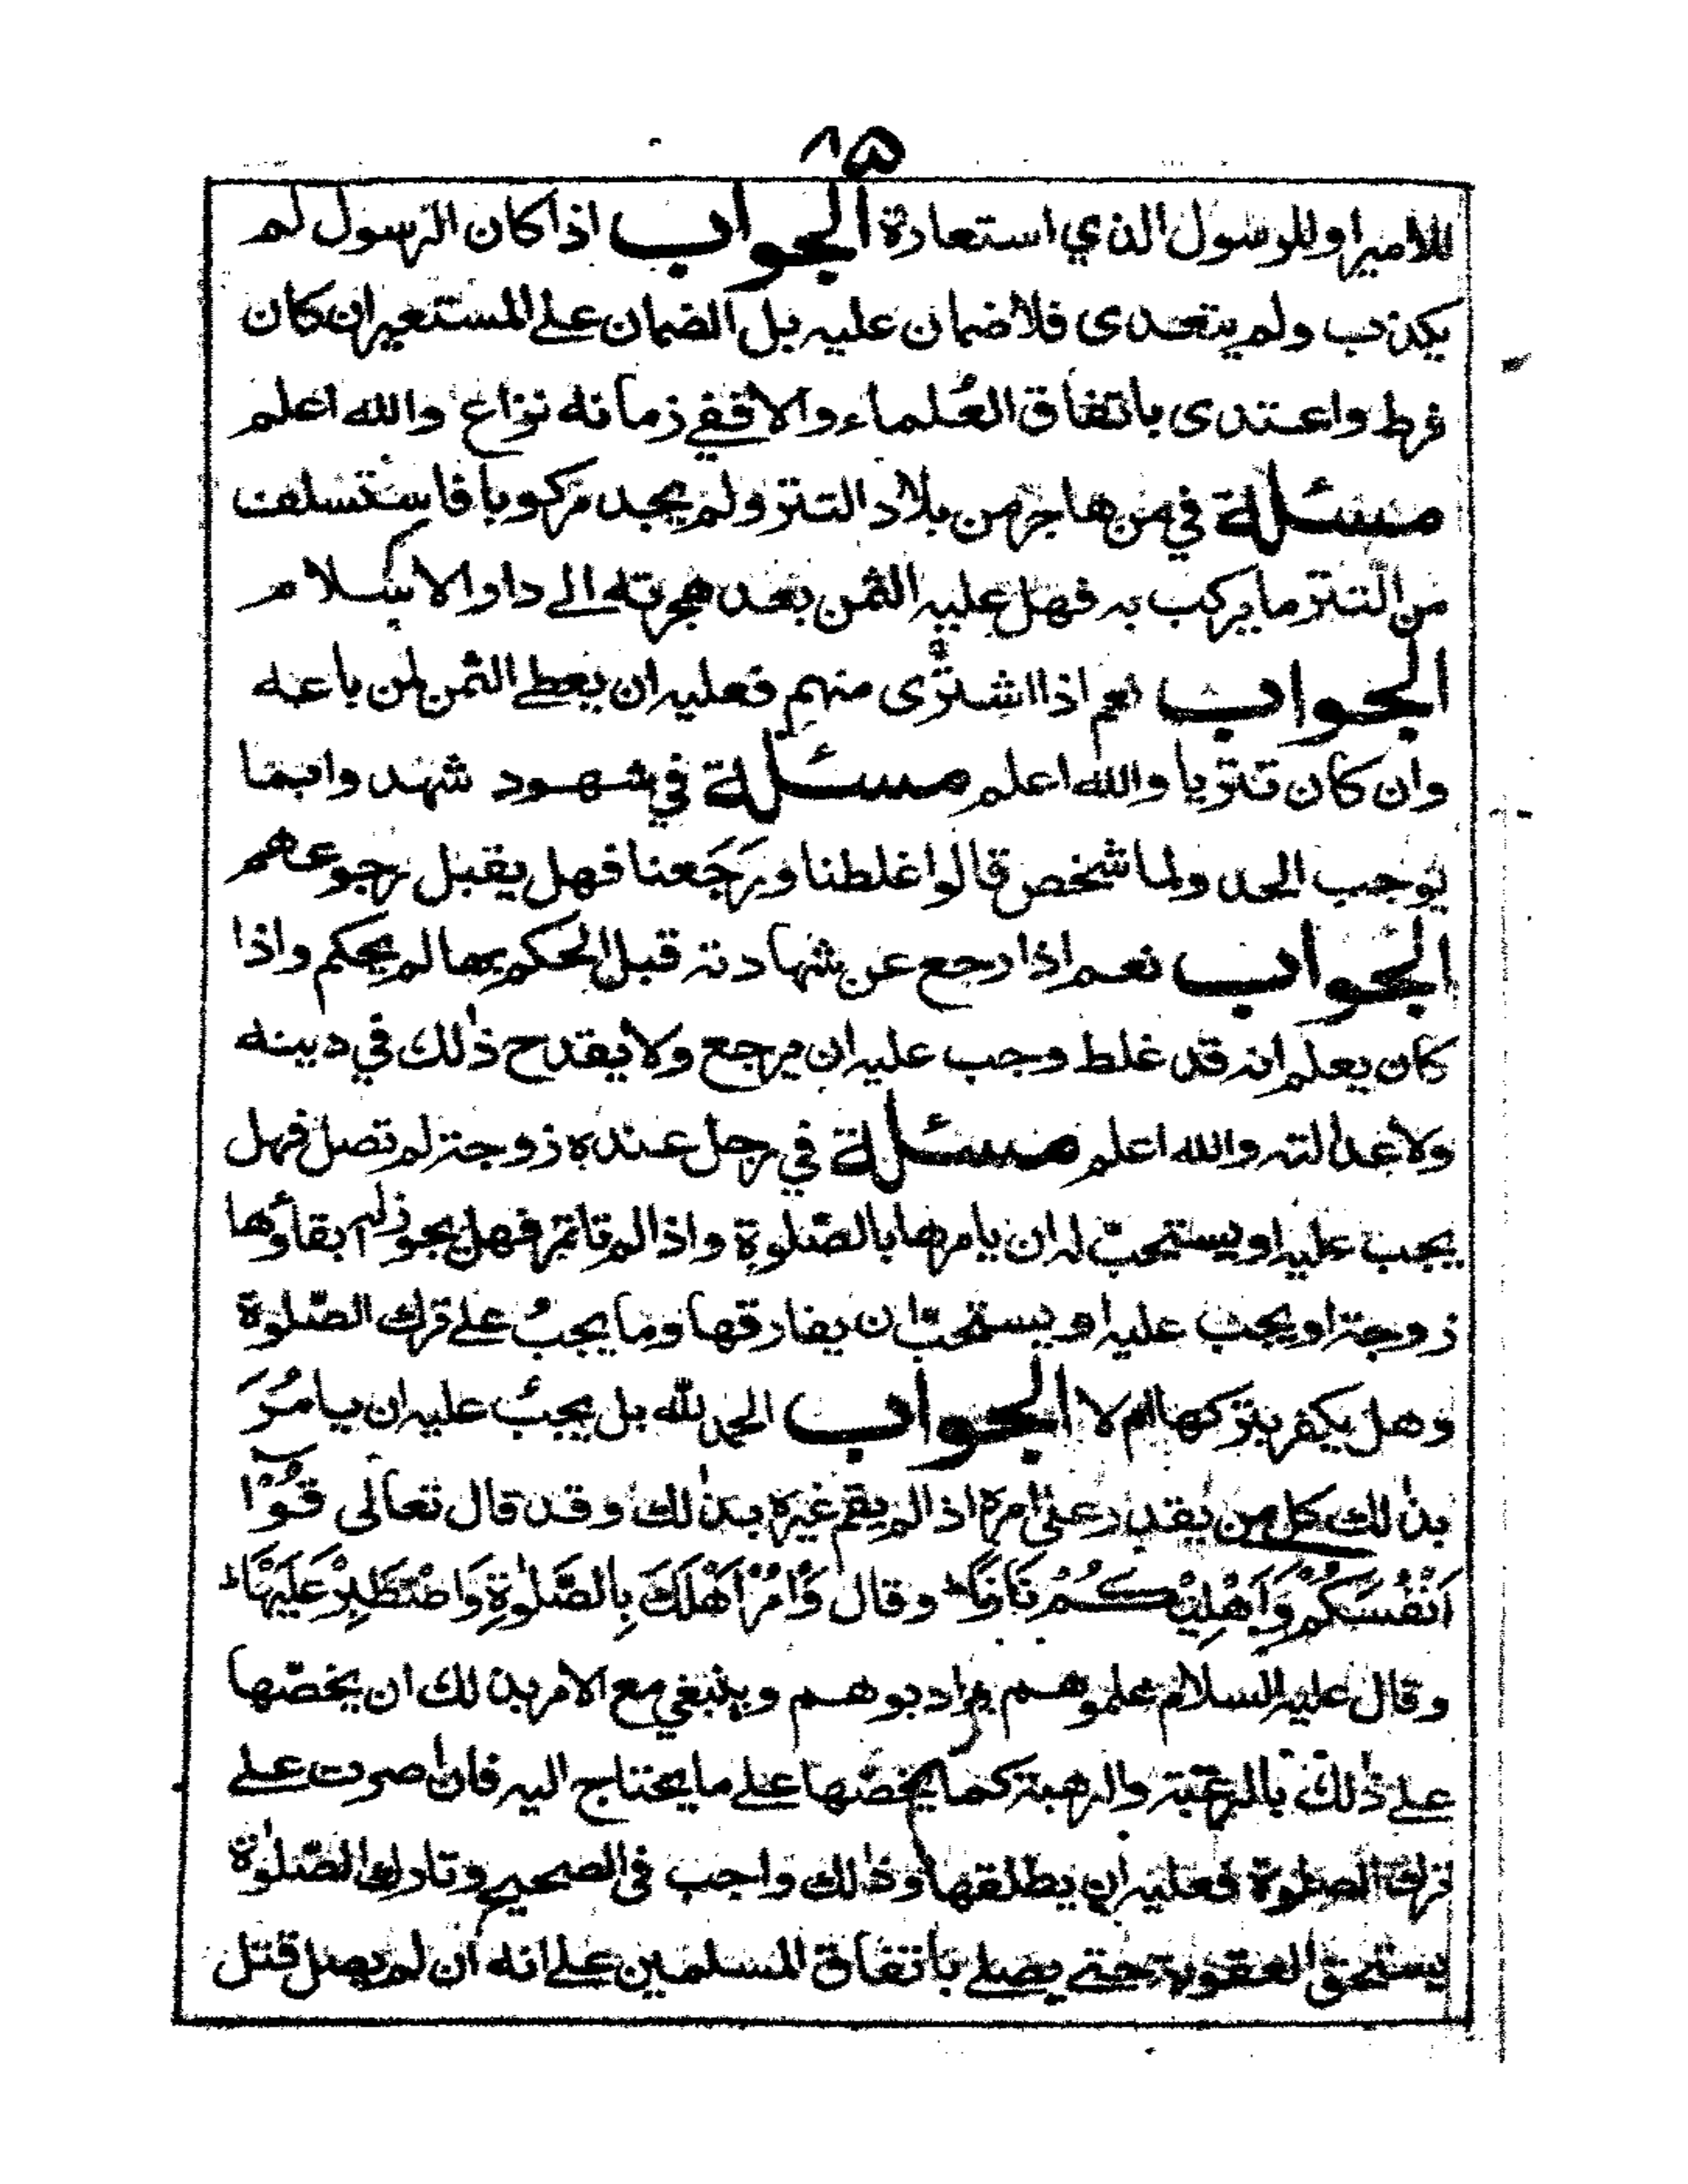 ٨٥
للامير او للرسول الذي استعارة الجواب اذا كان الرسول لم
يكذب ولم يتعدى فلا ضمان عليه بل الضمان على المستعير ان كان
فرط واعتدى باتفاق العُلماء والا ففي زمانه نزاع والله اعلم
مسئلة في من هاجر من بلاد التتر ولم يجد مركوبا فاستسلف
من التتر ما يركب به فهل عليه الثمن بعد هجرته الى داو الاسلام
الجواب نعم اذا اشترى منهم فعليه ان يعطى الثمن لمن باعه
وان كان تتريا والله اعلم مسئلة في شهود شهد وابما
يوجب الحد ولما شخص قالوا غلطنا ورَجَعنا فهل يقبل رجوعهم
الجواب نعم اذا رجع عن شهادته قبل الحكم بها لم يحكم واذا
كان يعلم انه قد غلط وجب عليه ان يرجع ولا يقدح ذٰلك في دينه
ولا عدالته والله اعلم مسئلة في رجل عنده زوجة لم تصل فهل
يجب عليه او يستحبّ له ان يامرها بالصّلوة واذا لم تاتمر فهل يجوز له ابقاؤها
زوجة او يجب عليه او يستحبّ ان يفارقها وما يجبُ على ترك الصّلوة
وهل يكفر بتركها ام لا الجواب الحمد للّٰه بل يجبُ عليه ان يامُرَ
بذٰلك كل من يقدر علىٰ امره اذا لم يقم غيره بذٰلك وقد قال تعالى قُوْٓا
اَنْفُسَكُمْ وَاَهْلِيْكُمْ نَارًا ؕ وقال وَأْمُرْ اَهْلَكَ بِالصَّلٰوةِ وَاصْطَبِرْ عَلَيْهَا ؕ
وقال عليه السلام علموهم وادبوهم وينبغي مع الامر بذٰلك ان يخصّها
على ذٰلك بالرغبة والرهبة كما يخصّها على ما يحتاج اليه فان اصرت على
ترك الصلوة فعليه ان يطلقها وذٰلك واجب فى الصحيح وتارك الصّلوٰة
يستحق العقوبة حتى يصلى باتفاق المسلمين على انه ان لم يصل قتل